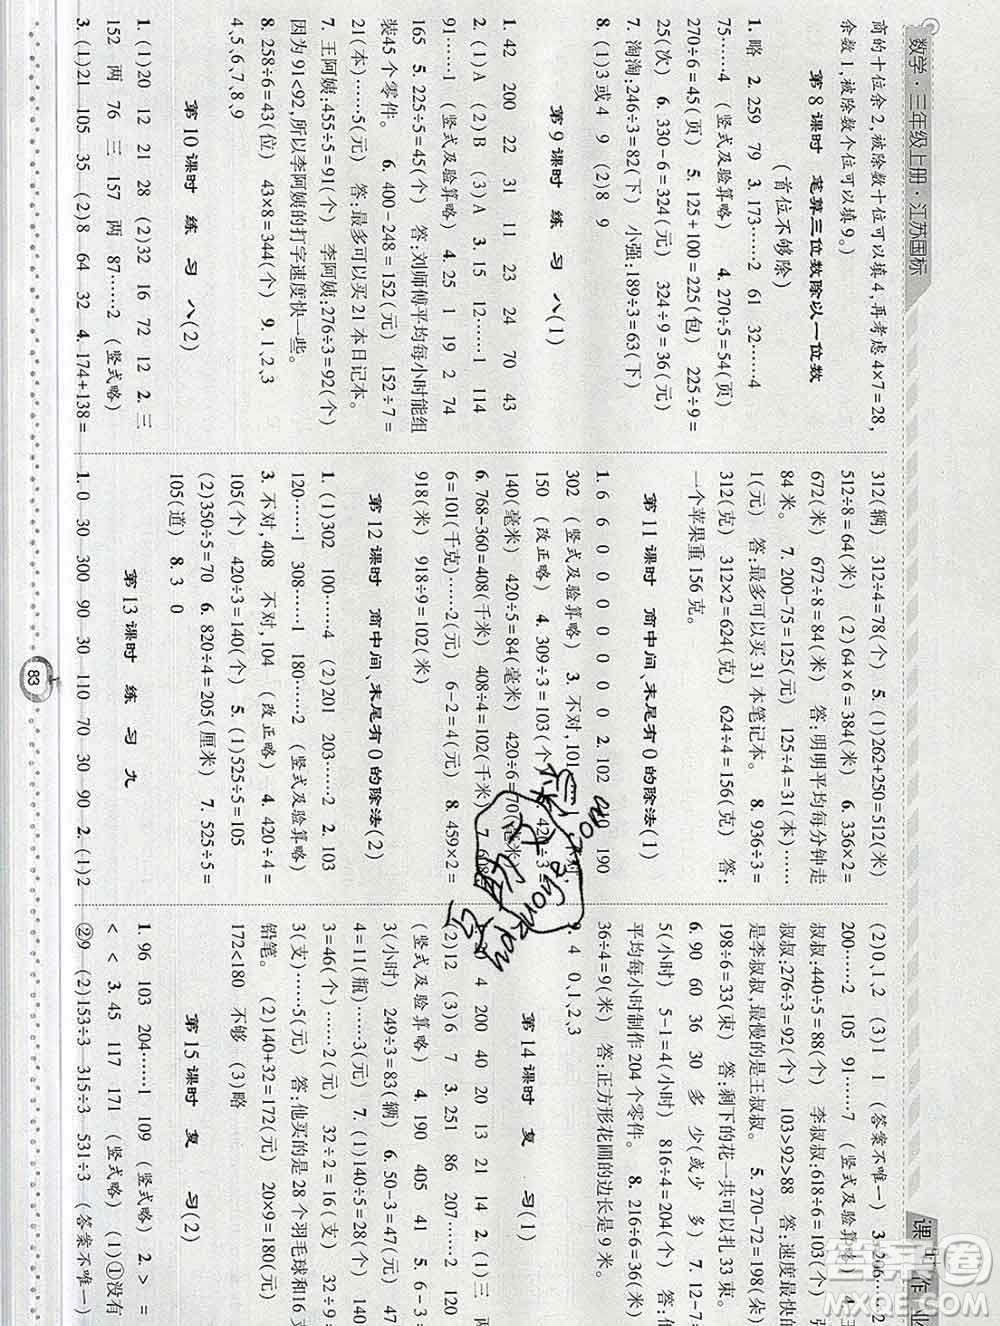 数学·三年级上册·江苏国标
商的十位余2,被除数十位可以填4,再考虑4×7=28,
余数1,被除数个位可以填9。)
第8课时 笔算三位数除以一位数
(首位不够除)
1. 略 2. 259 79 3. 173……2 61 32……4
75……4 (竖式及验算略) 4. 270÷5=54(页)
270÷6=45(页) 5. 125+100=225(包) 225÷9=
25(次) 6. 330-6=324(元) 324÷9=36(元)
7. 淘淘:246÷3=82(下) 小强:189÷3=63(下)
8. (1)3或4 9 (2)8 9
第9课时 练 习 八(1)
1. 42 200 22 31 11 23 24 70 43
2. (1)A (2)B (3)A 3. 15 12……1 114
91……1 (竖式及验算略) 4. 25 1 19 2 74
165 5. 225÷5=45(个) 答:刘师傅平均每小时能组
装45个零件。 6. 400-248=152(元) 152÷7=
21(本)……5(元) 答:最多可以买21本日记本。
7. 王阿姨:455÷5=91(个) 李阿姨:276÷3=92(个)
因为91<92,所以李阿姨的打字速度快一些。
8. 258÷6=43(位) 43×8=344(个) 9. 1、2、3
4、5、6、7、8、9
第10课时 练 习 八(2)
1. (1)20 12 21 28 (2)32 16 72 12 2. 三
152 两 76 三 157 两 87……2 (竖式略)
3. (1)21 105 35 (2)8 64 32 4. 174+138=
312(辆) 312÷4=78(个) 5. (1)262+250=512(米)
512÷8=64(米) (2)64×6=384(米) 6. 336×2=
672(米) 672÷8=84(米) 答:明明平均每分钟走
84米。 7. 200-75=125(元) 125÷4=31(本)……
1(元) 答:最多可以买31本笔记本。 8. 936÷3=
312(克) 312×2=624(克) 624÷4=156(克) 答:
一个苹果重156克。
第11课时 商中间、末尾有0的除法(1)
1. 6 6 0 0 0 0 0 0 2. 102 210 190
302 (竖式及验算略) 3. 不对,101 不对,
150 (改正略) 4. 309÷3=103(个) 420÷3=
140(毫米) 420÷5=84(毫米) 420÷6=70(毫米)
6. 768-360=408(千米) 408÷4=102(千米) 7. 608÷
6=101(千克)……2(元) 6-2=4(元) 8. 459×2=
918(米) 918÷9=102(米)
第12课时 商中间、末尾有0的除法(2)
1. (1)302 100……4 (2)201 203……2 2. 103
120……1 308……1 180……2 (竖式及验算略)
3. 不对,408 不对,104 (改正略) 4. 420÷4=
105(个) 420÷3=140(个) 5. (1)525÷5=105
(2)350÷5=70 6. 820÷4=205(厘米) 7. 525÷5=
105(道) 8. 3 0
第13课时 练 习 九
1. 0 30 300 90 30 110 70 30 90 2. (1)2
(2)0、1、2 (3)1 1 (答案不唯一) 3. 206……
200……2 105 91……7 (竖式及验算略)
叔叔:440÷5=88(个) 李叔叔:618÷6=103(个)
叔叔:276÷3=92(个) 103>92>88 答:速度最快的
是李叔叔,最慢的是王叔叔。 5. 270-72=198(朵)
198÷6=33(束) 答:剩下的花一共可以扎33束。
6. 90 60 36 30 多 少(或少 多) 7. 12-7=
5(小时) 5-1=4(小时) 816÷4=204(个) 答:
平均每小时制作204个零件。 8. 216÷6=36(米)
36÷4=9(米) 答:正方形花圃的边长是9米。
9. 4 0、1、2、3
第14课时 复 习(1)
4 200 40 20 13 21 14 2. (1)三 两
(2)12 (3)6 7 3. 251 86 207……2
(竖式及验算略) 4. 190 405 41 5.
3(小时) 249÷3=83(辆) 6. 50-3=47(元)
4=11(瓶)……3(元) 7. (1)140÷5=28(元) 140
3=46(个)……2(元) 32÷2=16(支) 32÷9=
3(支)……5(元) 答:他买的是28个羽毛球和16支
铅笔。 (2)140+32=172(元) 20×9=180(元)
172<180 不够 (3)略
第15课时 复 习(2)
1. 96 103 204……1 109 (竖式略) 2. > =
< < 3. 45 117 171 (竖式略) (1)①没有
②9 (2)153÷3 315÷3 531÷3 (答案不唯一)
83
答案圈